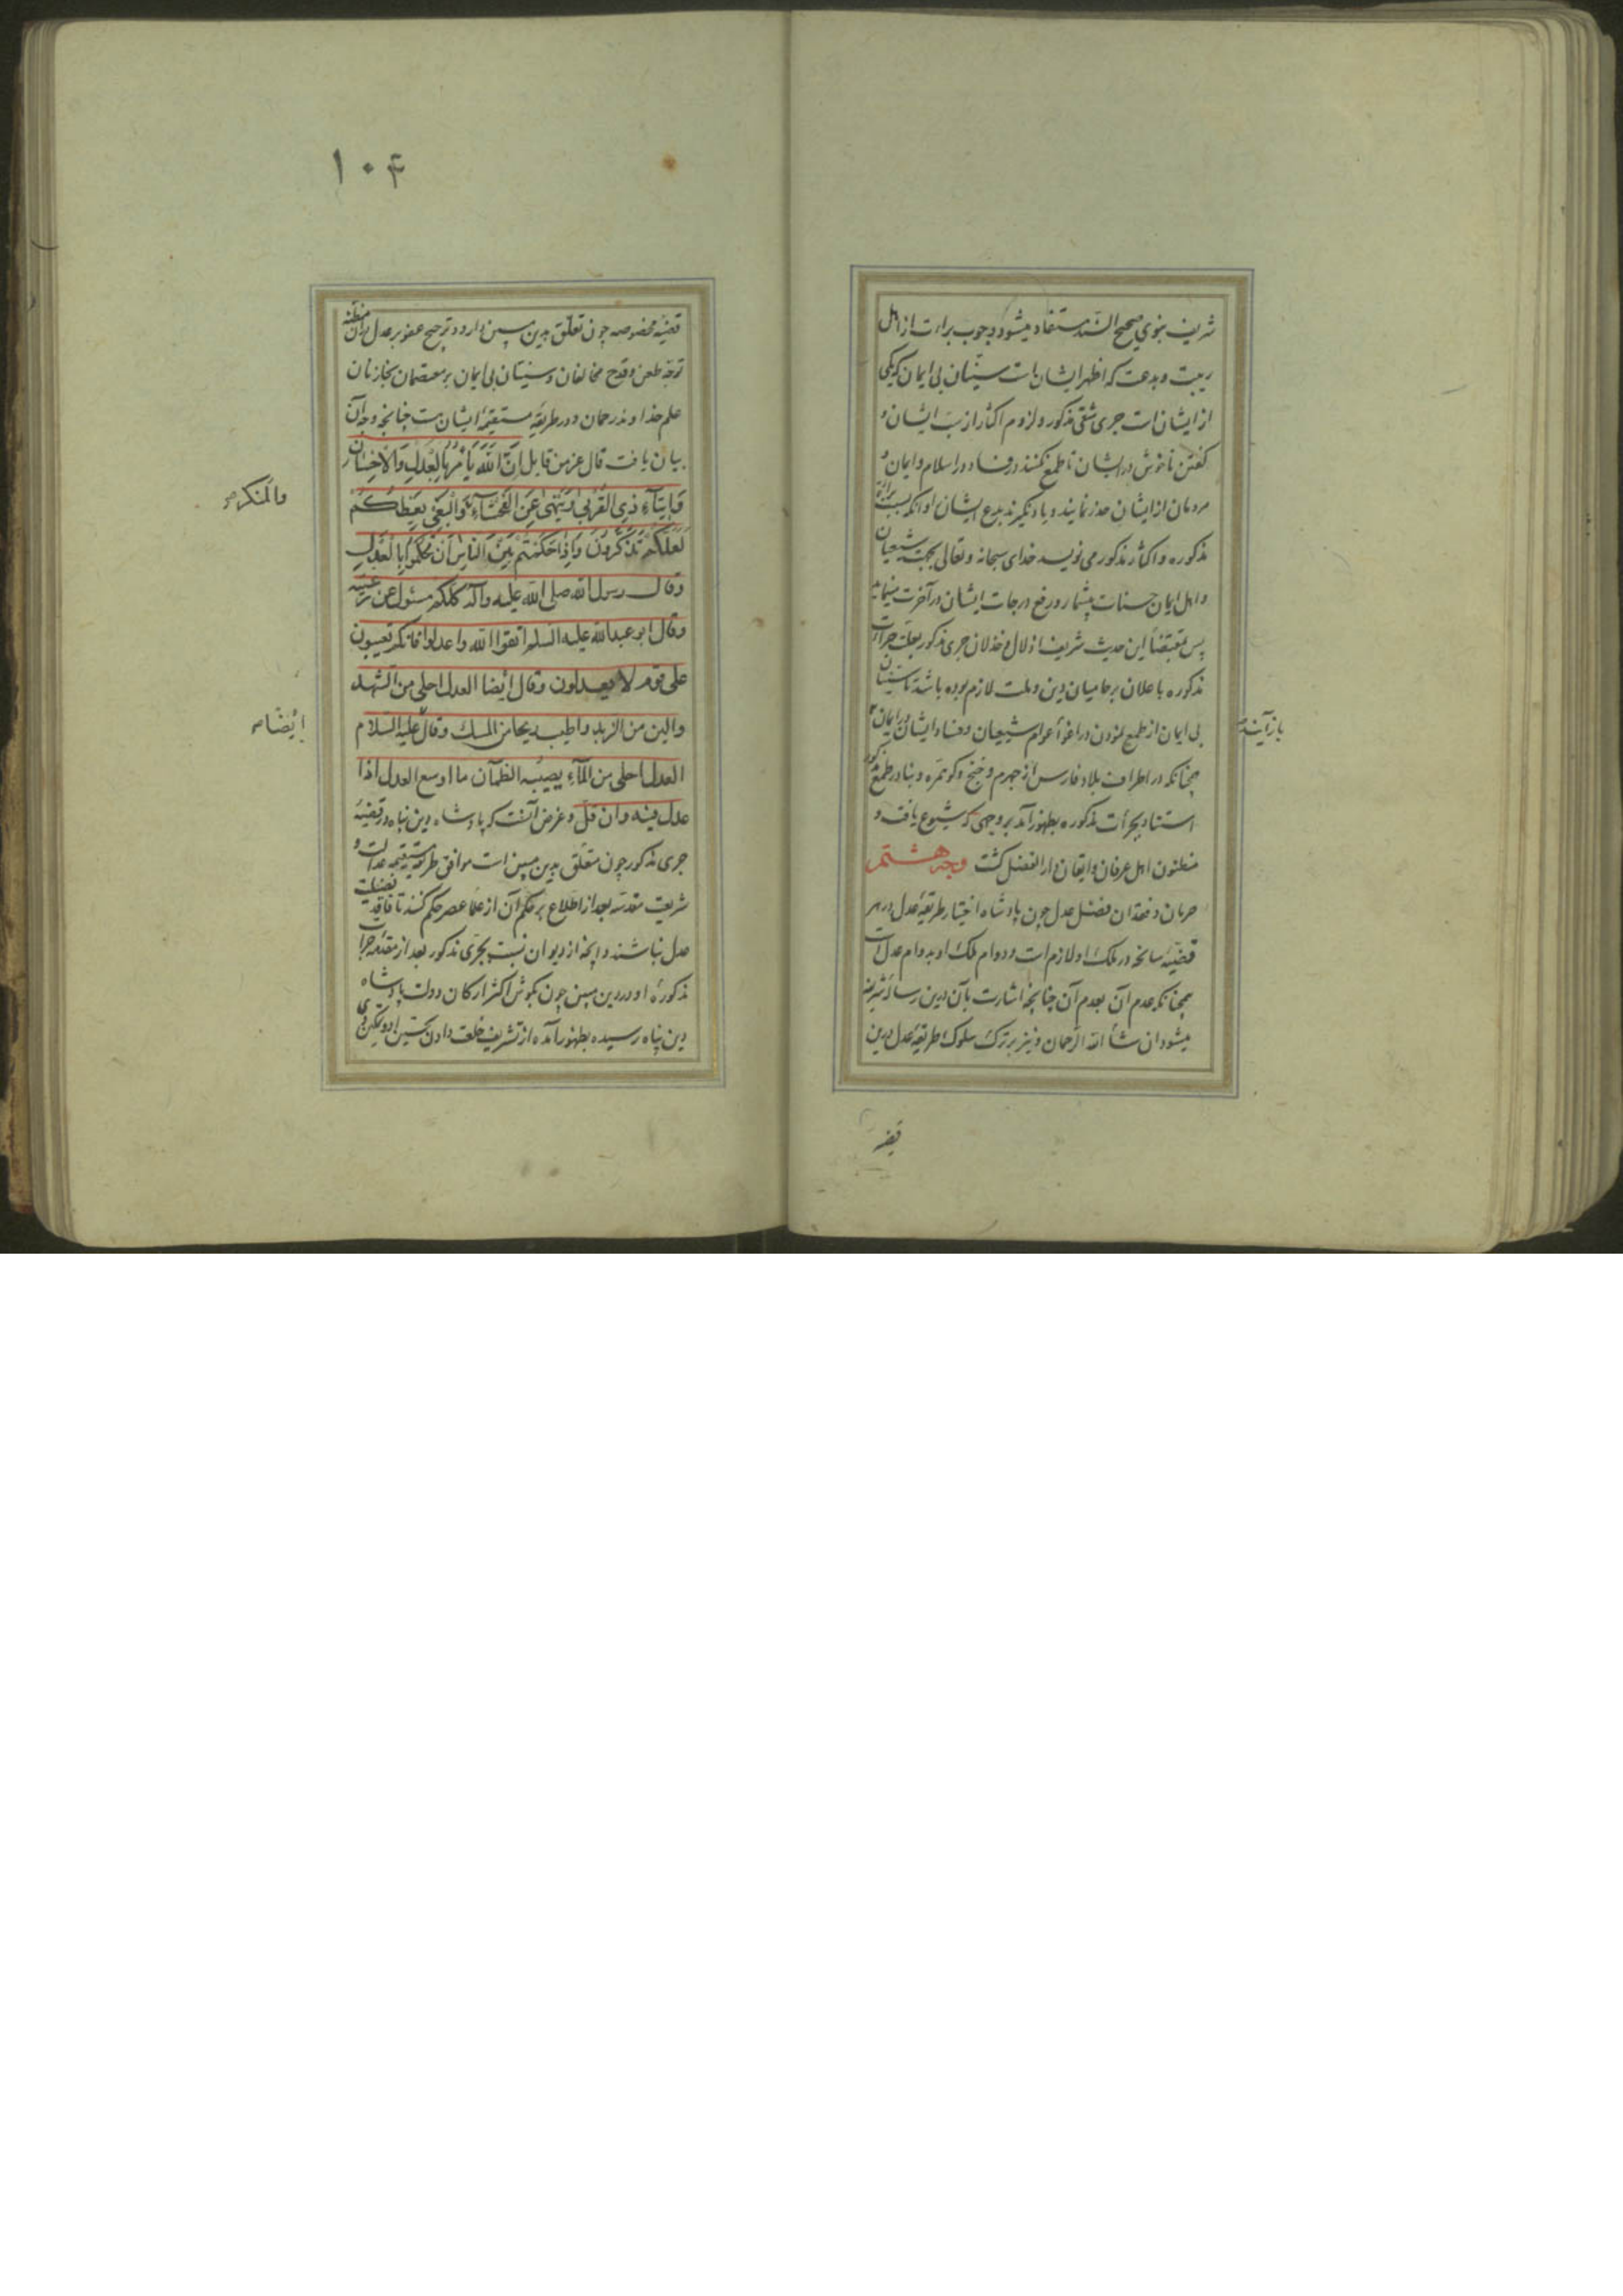 شریف نبوی صحیح السّند مستفاد میشود وجوب براءت از اهل
ریبت و بدعت که اظهر ایشان است سنّیان بی ایمان که یکی
از ایشان است جری شقی مذکور و لزوم اکثار از سبّ ایشان و
کفتن ناخوش در ایشان تا طمع نکنند در فساد در اسلام و ایمان و
مردمان از ایشان حذر نمایند و یاد نکیرند بدع ایشان او آنکه بسبب براءة
مذکوره و اکثار مذکور می نویسد خدای سبحانه و تعالی بجهة شیعیان
و اهل ایمان حسنات بیشمار و رفع درجات ایشان در آخرت مینماید
پس بمقتضاء این حدیث شریف اذلال و خذلان جری مذکور بعلّت جراءت
مذکوره باعلان بر حامیان دین و ملت لازم بوده باشد تا سنّیان
بی ایمان از طمع نمودن در اغواء عوام شیعیان و فساد ایشان در ایمان
باز آیند
همچنانکه در اطراف بلاد فارس از جهرم و خنج و کوهمره و بنادر طمع مذکور
استناد بجرأت مذکوره بظهور آمد بر وجهی که شیوع یافت و
مظنون اهل عرفان و ایقان دار الفضل کشت وجه هشتم
حرمان و فقدان فضل عدل چون پادشاه اختیار طریقهٔ عدل در هر
قضیّهٔ سانحه در ملک او لازم است و دوام ملک او بدوام عدل است
همچنانکه عدم آن بعدم آن چنانچه اشارت بآن درین رساله شریفه
میشود ان شاء الله الرّحمان و نیز بر ترک سلوک طریقهٔ عدل درین
قضیه
۱۰۴
قضیّهٔ مخصوصه چون تعلّق بدین مبین دارد و ترجیح عفو بر عدل در آن مظنّه
توجّه طعن و قدح مخالفان و سنّیان بی ایمان بر معتصمان بخازنان
علم خداوند رحمان و در طریقهٔ مستقیمهٔ ایشان هست چنانچه وجه آن
بیان یافت قال عزّ من قایل اِنَّ اللّٰهَ یَأمُرُ بِالعَدلِ وَالاِحسَانِ
وَاِیتَآءِ ذِی القُربیٰ وَیَنهیٰ عَنِ الفَحشَآءِ وَالبَغیِ یَعِظُکُم
والمنکر صح
لَعَلَّکُم تَذَکَّرُونَ وَاِذَا حَکَمتُم بَینَ النَّاسِ اَن تَحکُمُوا بِالعَدلِ
وقال رسول الله صلی الله علیه وآله کلکم مسئول عن رعیّته
وقال ابو عبدالله علیه السلم اتقوا الله واعدلوا فانکم تعیبون
علی قوم لا یعدلون وقال ایضا العدل احلی من الشهد
والین من الزبد واطیب ریحا من المسک وقال علیه السّلام
ایضًا صح
العدل احلی من المآءِ یصیبُه الظمآن ما اوسع العدل اذا
عدل فیه وان قلّ و غرض آنست که پادشاه دین پناه در قضیّهٔ
جری مذکور چون متعلّق بدین مبین است موافق طریقهٔ مستقیمه عدالت و
شریعت مقدسه بعد از اطّلاع بر حکم آن از علماء عصر حکم کنند تا فاقد فضیلت
عدل نباشند و آنچه از دیوان نسبت بجری مذکور بعد از مقدمه جراءت
مذکورهٔ او در دین مبین چون بکوش اکثر ارکان دولت پادشاه
دین پناه رسیده بظهور آمده از تشریف خلعت دادن